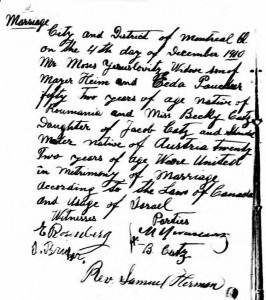 Marriage
City and District of Montreal
on the 4th day of December 1910
Mr Moses son of
Mazer Heim and Paucher
fifty Two years of age native of
Roumania and Miss Becky Catz
Daughter of Jacob Catz and
native of Austria Twenty
Two years of age Were United
in Metrimony of Marriage
According to the Laws of Canada
and Usige of Israel
Witnesses Parties
E Rosenberg M
B Catz
Rev. Samuel Herman